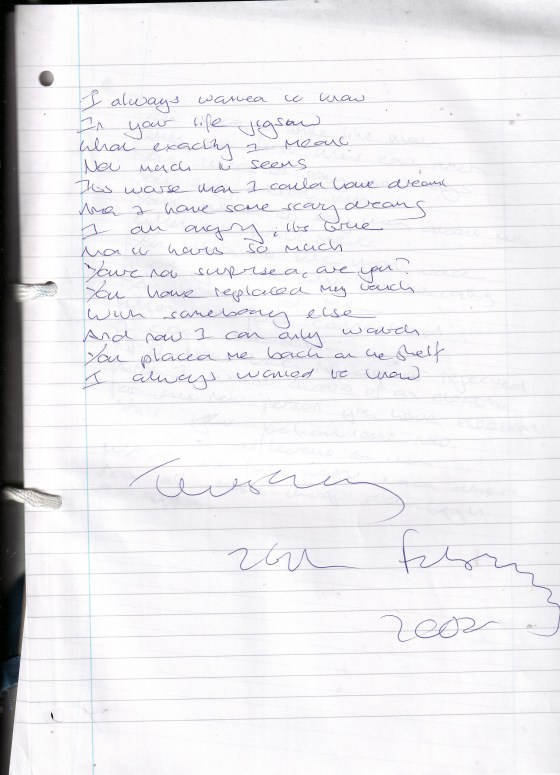 I always wanted to know
In your life jigsaw
What exactly I mean.
Not much it seems
Its worse than I could have dreamt
And I have some scary dreams
I am angry, its true
And it hurts so much
You're not surprised, are you?
You have replaced my touch
With somebody else
And now I can only watch
You placed me back on the shelf
I always wanted to know
Tuesday
26th February
2002